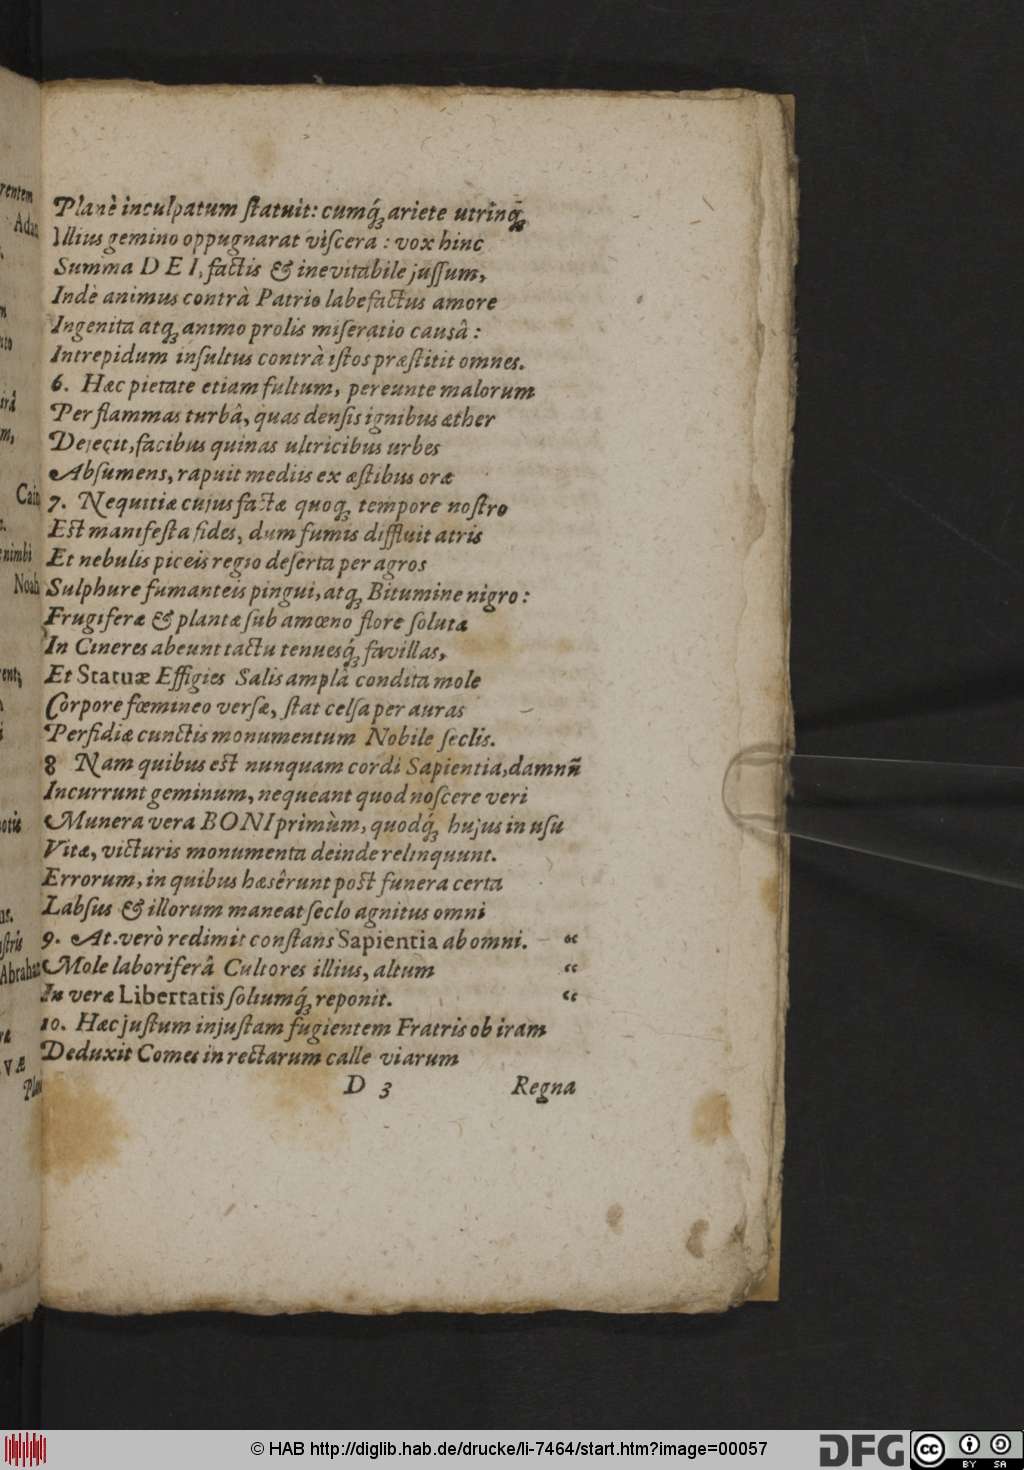 Planè inculpatum ſtatuit: cumq́ꝫ ariete utrinq̃ꝫ
Illius gemino oppugnarat viſcera : vox hinc
Summa D E I, factis & inevitabile juſſum,
Indè animus contrà Patrio labefactus amore
Ingenita atqꝫ animo prolis miſeratio causâ :
Intrepidum inſultus contrà iſtos præſtitit omnes.
6. Hæc pietate etiam fultum, pereunte malorum
Per flammas turbâ, quas denſis ignibus æther
Dejecit, facibus quinas ultricibus urbes
Abſumens, rapuit mediis ex æſtibus oræ
7. Nequitiæ cujus factæ quoqꝫ tempore noſtro
Eſt manifeſta fides, dum fumis diffluit atris
Et nebulis piceis regio deſerta per agros
Sulphure fumanteis pingui, atqꝫ Bitumine nigro :
Frugiferæ & plantæ ſub amœno flore ſoluta
In Cineres abeunt tactu tenuesq́ꝫ favillas,
Et Statuæ Effigies Salis amplâ condita mole
Corpore fœmineo verſæ, ſtat celſa per auras
Perfidiæ cunctis monumentum Nobile ſeclis.
8 Nam quibus eſt nunquam cordi Sapientia, damnũ
Incurrunt geminum, nequeant quod noſcere veri
Munera vera BONI primùm, quodq́ꝫ hujus in uſu
Vitæ, victuris monumenta deinde relinquunt.
Errorum, in quibus hæsêrunt poſt funera certa
Labſus & illorum maneat ſeclo agnitus omni
9. At verò redimit conſtans Sapientia ab omni. “
Mole laboriferâ Cultores illius, altum “
In veræ Libertatis ſoliumq́ꝫ reponit. “
10. Hæc juſtum injuſtam fugientem Fratris ob iram
Deduxit Comes in rectarum calle viarum
D 3 Regna
rentem
Adam
Cain
nimbi
Noah
Abraham
VÆ
Plan
© HAB http://diglib.hab.de/drucke/li-7464/start.htm?image=00057
DFG
cc BY SA